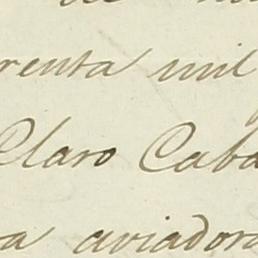 renta mil
Claro Caba
a aviadora